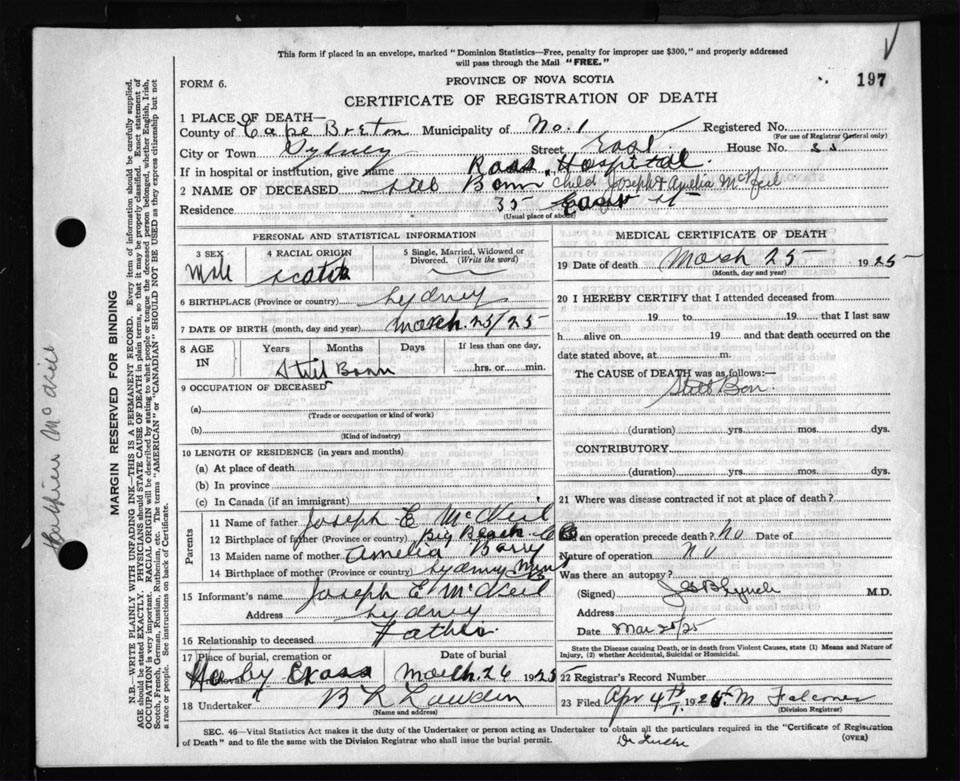 This form if placed in an envelope, marked "Dominion Statistics—Free, penalty for improper use $300," and properly addressed
will pass through the Mail "FREE."
FORM 6.
PROVINCE OF NOVA SCOTIA
197
CERTIFICATE OF REGISTRATION OF DEATH
1 PLACE OF DEATH—
County of Cape Breton Municipality of No. 1 Registered No.
(For use of Registrar General only)
City or Town Sydney Street East House No.
If in hospital or institution, give name Ross Hospital.
2 NAME OF DECEASED Still Born child Joseph & Amelia McNeil
Residence 35 East St
(Usual place of abode)
PERSONAL AND STATISTICAL INFORMATION
3 SEX
Male
4 RACIAL ORIGIN
Scotch
5 Single, Married, Widowed or Divorced. (Write the word)
6 BIRTHPLACE (Province or country) Sydney
7 DATE OF BIRTH (month, day and year) March. 25/25
8 AGE IN Years Months Days If less than one day, hrs. or min.
Still Born
9 OCCUPATION OF DECEASED
(a)
(Trade or occupation or kind of work)
(b)
(Kind of industry)
10 LENGTH OF RESIDENCE (in years and months)
(a) At place of death
(b) In province
(c) In Canada (if an immigrant)
Parents
11 Name of father Joseph E McNeil
12 Birthplace of father (Province or country) Big Beach
13 Maiden name of mother Amelia Barry
14 Birthplace of mother (Province or country) Sydney Mines
15 Informant's name Joseph E McNeil
Address Sydney
16 Relationship to deceased Father
17 Place of burial, cremation or removal Holy Cross
Date of burial March 26 1925
18 Undertaker
(Name and address)
MEDICAL CERTIFICATE OF DEATH
19 Date of death March 25 1925
(Month, day and year)
20 I HEREBY CERTIFY that I attended deceased from
19 to 19 that I last saw
h alive on 19 and that death occurred on the
date stated above, at m.
The CAUSE of DEATH was as follows:—
Still Bor
(duration) yrs. mos. dys.
CONTRIBUTORY
(duration) yrs. mos. dys.
21 Where was disease contracted if not at place of death?
an operation precede death? No Date of
Nature of operation No
Was there an autopsy?
(Signed) M.D.
Address
Date Mar 25/25
State the Disease causing Death, or in death from Violent Causes, state (1) Means and Nature of Injury, (2) whether Accidental, Suicidal or Homicidal.
22 Registrar's Record Number
23 Filed Apr 4th 1925 M Falconer
(Division Registrar)
SEC. 46—Vital Statistics Act makes it the duty of the Undertaker or person acting as Undertaker to obtain all the particulars required in the "Certificate of Registration
of Death" and to file the same with the Division Registrar who shall issue the burial permit.
(OVER)
MARGIN RESERVED FOR BINDING
N.B.—WRITE PLAINLY WITH UNFADING INK—THIS IS A PERMANENT RECORD. Every item of information should be carefully supplied.
AGE should be stated EXACTLY. PHYSICIANS should STATE CAUSE OF DEATH in plain terms, so that it may be properly classified. Exact statement of
OCCUPATION is very important. RACIAL ORIGIN will be described by stating to what people or tongue the deceased person belonged, whether English, Irish,
Scotch, French, German, Russian, Ruthenian, etc. The terms "AMERICAN" or "CANADIAN" SHOULD NOT BE USED as they express citizenship but not
a race or people. See instructions on back of Certificate.